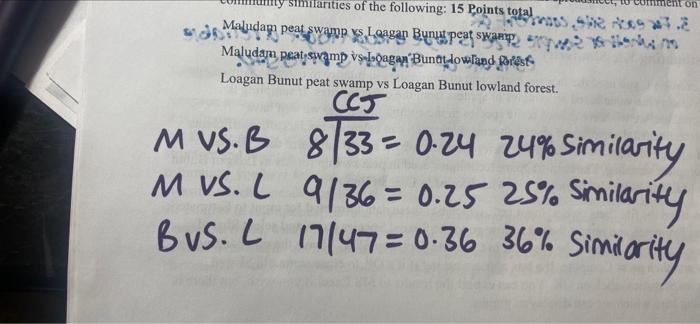 community similarities of the following: 15 Points total
Maludam peat swamp vs Loagan Bunut peat swamp
Maludam peat swamp vs Loagan Bunut lowland forest
Loagan Bunut peat swamp vs Loagan Bunut lowland forest.
CCJ
M VS. B 8/33 = 0.24 24% Similarity
M VS. L 9/36 = 0.25 25% Similarity
B VS. L 17/47 = 0.36 36% Similarity